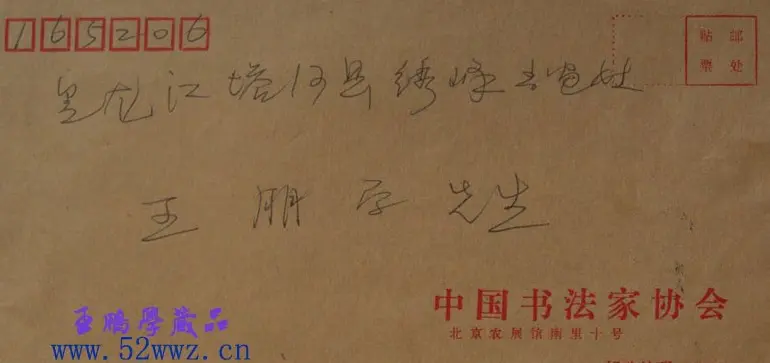 165206
贴邮
票处
黑龙江塔河县绣峰
王鹏学先生
王鹏学藏品
www.52wwz.cn
中国书法家协会
北京农展馆南里十号